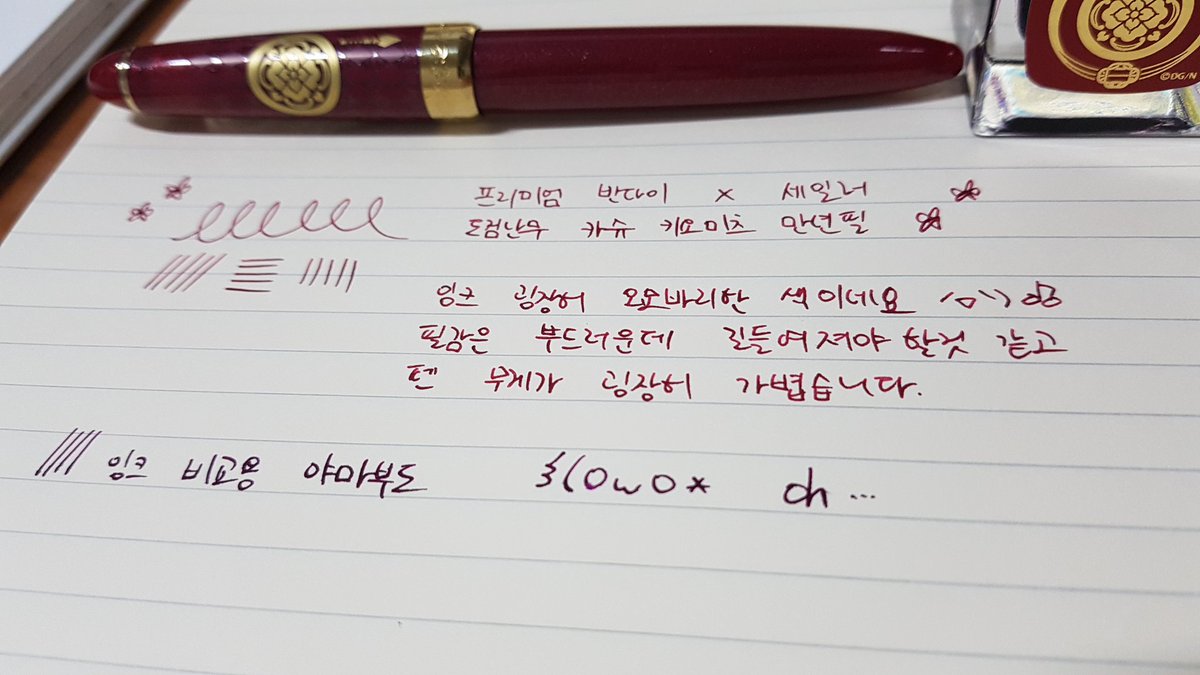 ©DG/N
프리미엄 반다이 x 세일러
도검난무 카슈 키요미츠 만년필
잉크 굉장히 오묘바리한 색이네요
필감은 부드러운데 길들여져야 할것 같고
펜 무게가 굉장히 가볍습니다.
잉크 비교용 야마부도 ꒰(OwO*